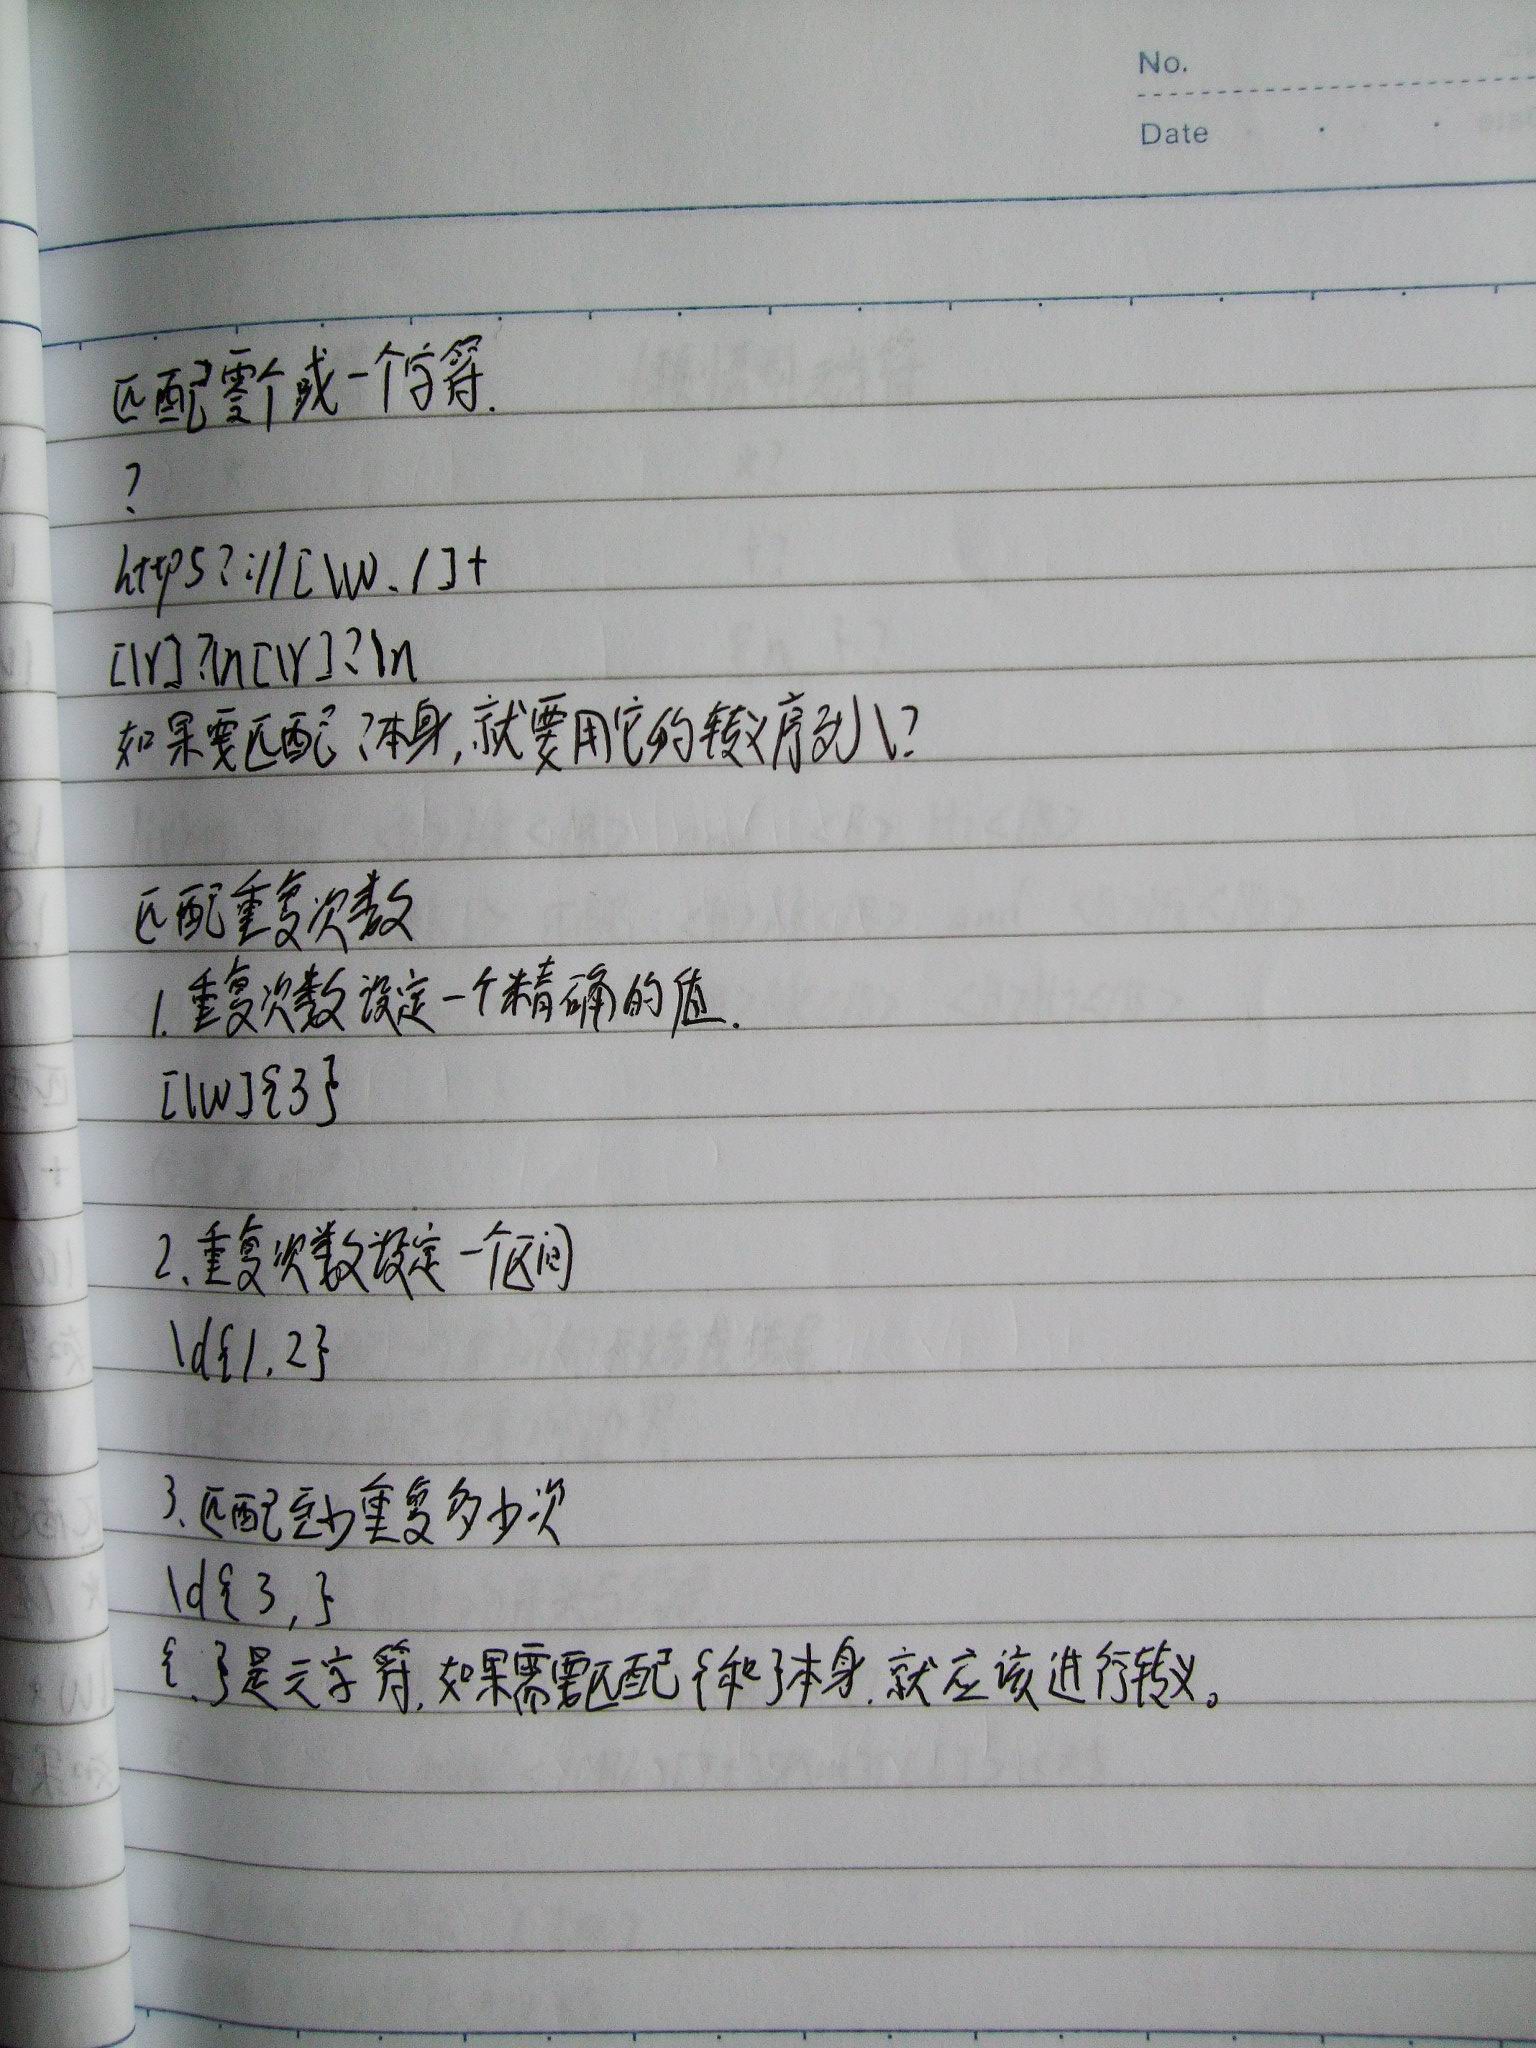 No.
Date
匹配零个或一个字符.
?
https?://[\w./]+
[\r]?\n[\r]?\n
如果要匹配?本身,就要用它的转义序列\?
匹配重复次数
1.重复次数设定一个精确的值.
[\w]{3}
2.重复次数设定一个区间
\d{1,2}
3.匹配至少重复多少次
\d{3,}
{,}是元字符,如果需要匹配{和}本身,就应该进行转义。